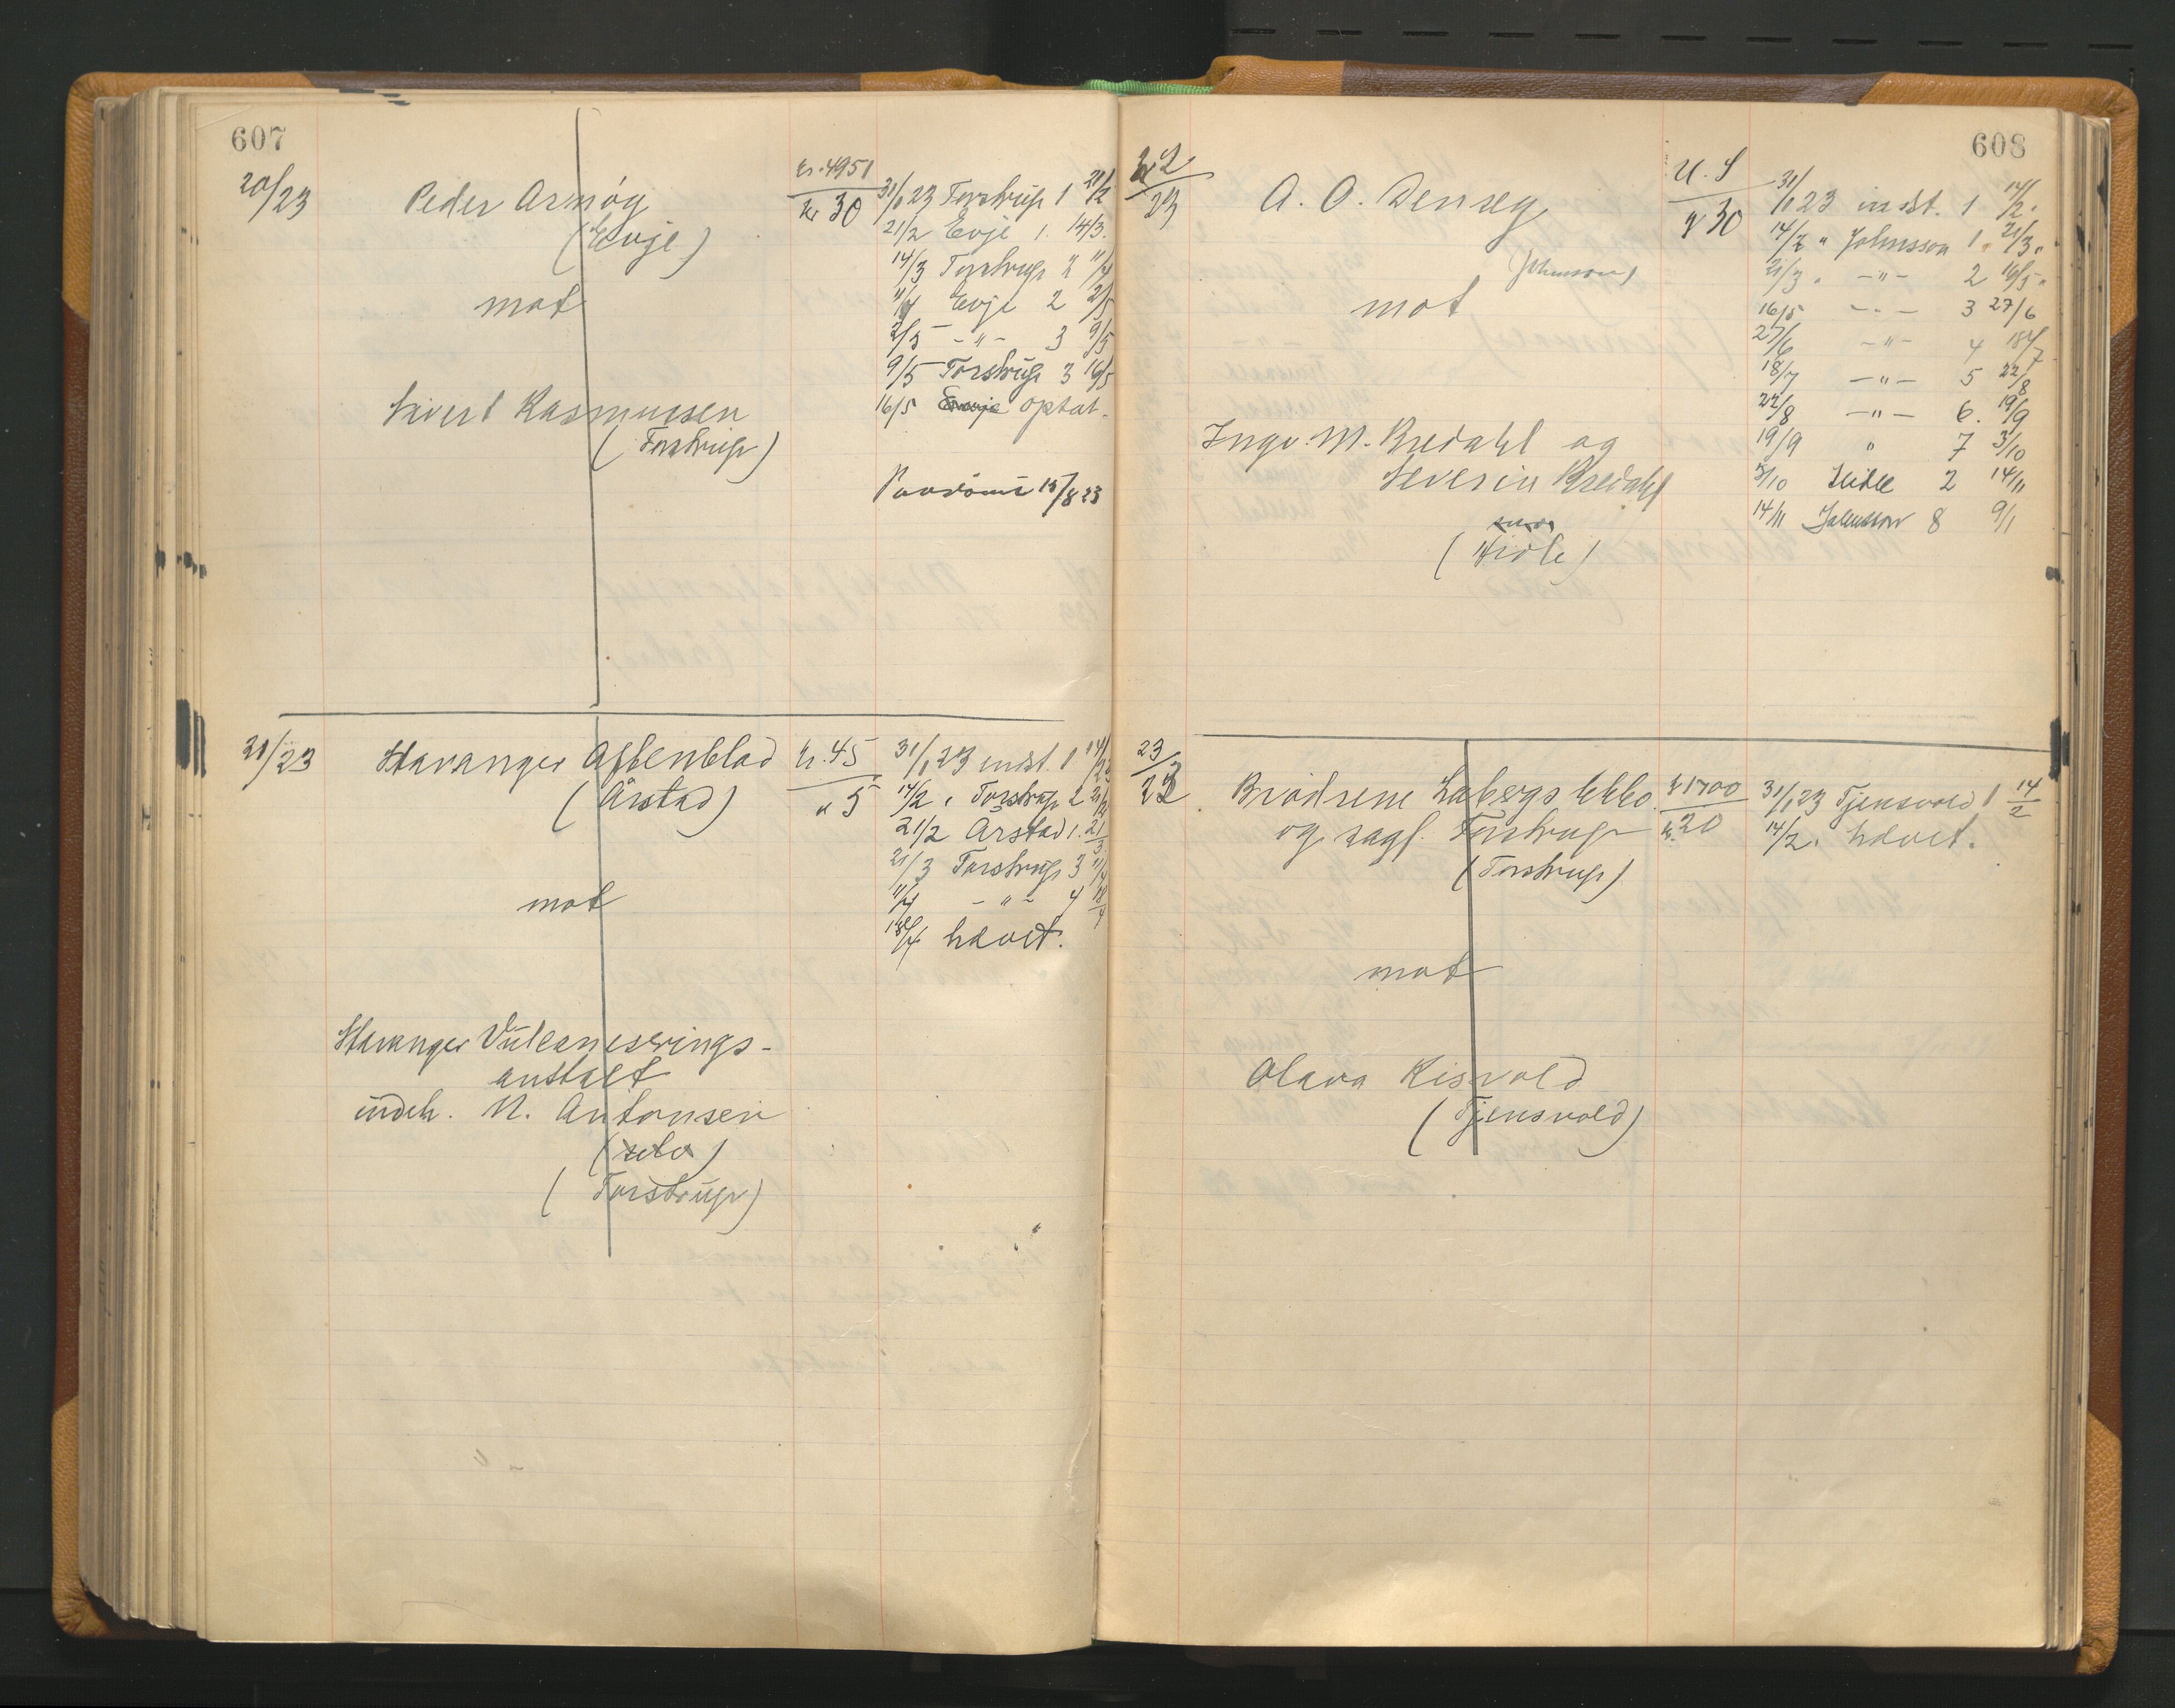 607
20/23
Peder Arnøy
(Evje)
mot
Sivert Rasmussen
(Torstrup)
kr. 4951
kr 30
31/1 23 Torstrup 1 21/2
21/2 Evje 1. 14/3.
14/3 Torstrup 2 11/4
11/4 Evje 2 2/5
2/5 - " - 3 9/5
9/5 Torstrup 3 16/5
16/5 optat.
Paadömt 15/8 23
21/23
Stavanger Aftenblad
(Årstad)
mot
Stavanger Vulcaniserings-
anstalt
indeh. N. Antonsen
(selv)
(Torstrup)
kr. 45
" 5
31/1 23 indst. 1 14/2
14/2 " Torstrup 2 21/2
21/2 Årstad 1. 21/3
21/3 Torstrup 3 11/4
11/4 - " - 4 18/4
18/4 hævet.
608
22/23
A. O.
(Johnsson)
mot
Ingv. M. Bredahl og
Severin Bredahl
(Hidle)
U. S
kr 30
31/1 23 indst. 1 14/2.
14/2 " Johnsson 1. 21/3 "
21/3 " - " - 2 16/5 "
16/5 - " - 3 27/6
27/6 - " - 4 18/7
18/7 - " - 5 22/8
22/8 - " - 6. 19/9
19/9 " 7 3/10
3/10 Hidle 2 14/11
14/11 Johnsson 8 9/1
23/23
Brödrene
og sagf. Torstrup
(Torstrup)
mot
Olava Risvold
(Tjensvold)
kr 1700
kr. 20
31/1 23 Tjensvold 1 14/2
14/2. hævet.